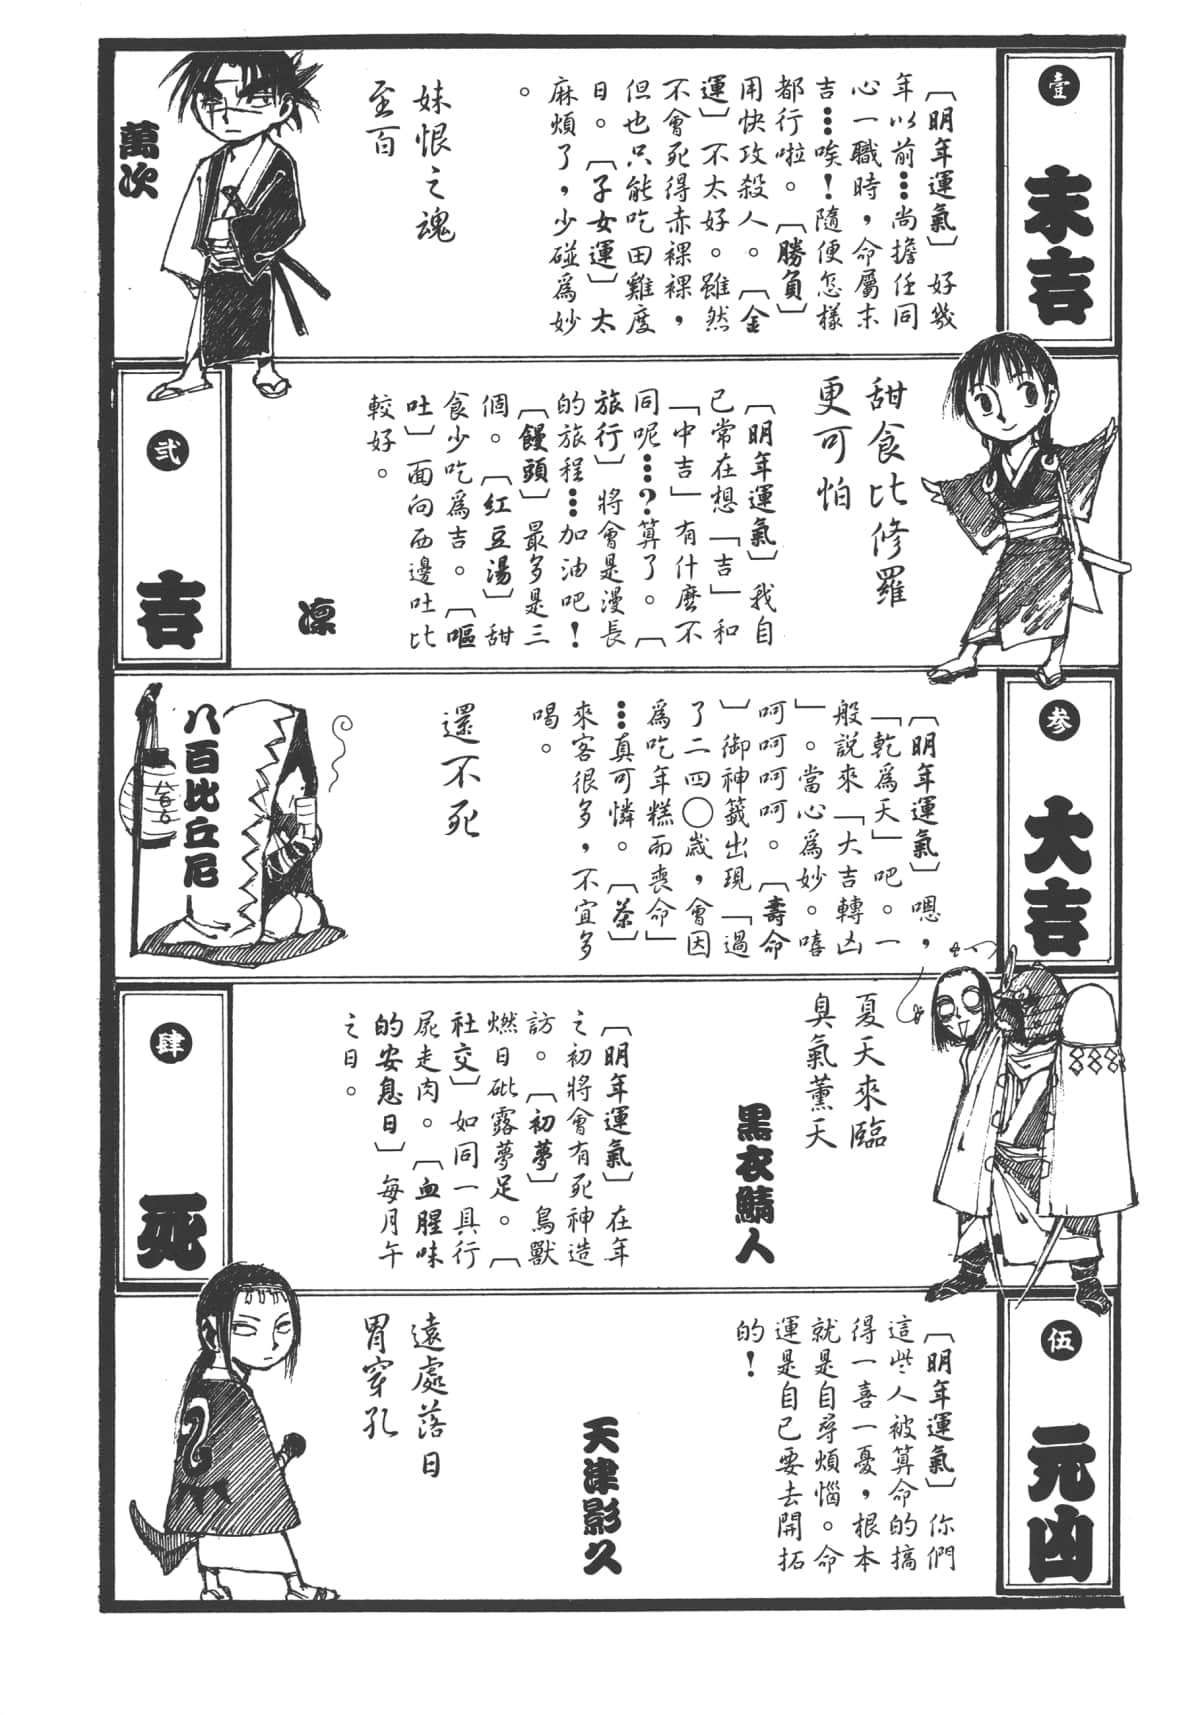 壹
末吉
〔明年運氣〕好幾
年以前…尚擔任同
心一職時，命屬末
吉…唉！隨便怎樣
都行啦。〔勝負〕
用快攻殺人。〔金
運〕不太好。雖然
不會死得赤裸裸，
但也只能吃田雞度
日。〔子女運〕太
麻煩了，少碰爲妙
。
妹恨之魂
至百
萬次
甜食比修羅
更可怕
〔明年運氣〕我自
已常在想「吉」和
「中吉」有什麼不
同呢…？算了。〔
旅行〕將會是漫長
的旅程…加油吧！
〔饅頭〕最多是三
個。〔紅豆湯〕甜
食少吃爲吉。〔嘔
吐〕面向西邊吐比
較好。
凛
貳
吉
參
大吉
〔明年運氣〕嗯，
「乾爲天」吧。一
般說來「大吉轉凶
」。當心爲妙。嘻
呵呵呵呵。〔壽命
〕御神籤出現「過
了二四〇歲，會因
爲吃年糕而喪命」
…真可憐。〔茶〕
來客很多，不宜多
喝。
還不死
八百比丘尼
夏天來臨
臭氣薰天
黑衣鯖人
〔明年運氣〕在年
之初將會有死神造
訪。〔初夢〕鳥獸
燃日砒露夢足。〔
社交〕如同一具行
屍走肉。〔血腥味
的安息日〕每月午
之日。
肆
死
伍
元凶
〔明年運氣〕你們
這些人被算命的搞
得一喜一憂，根本
就是自尋煩惱。命
運是自己要去開拓
的！
天津影久
遠處落日
胃穿孔